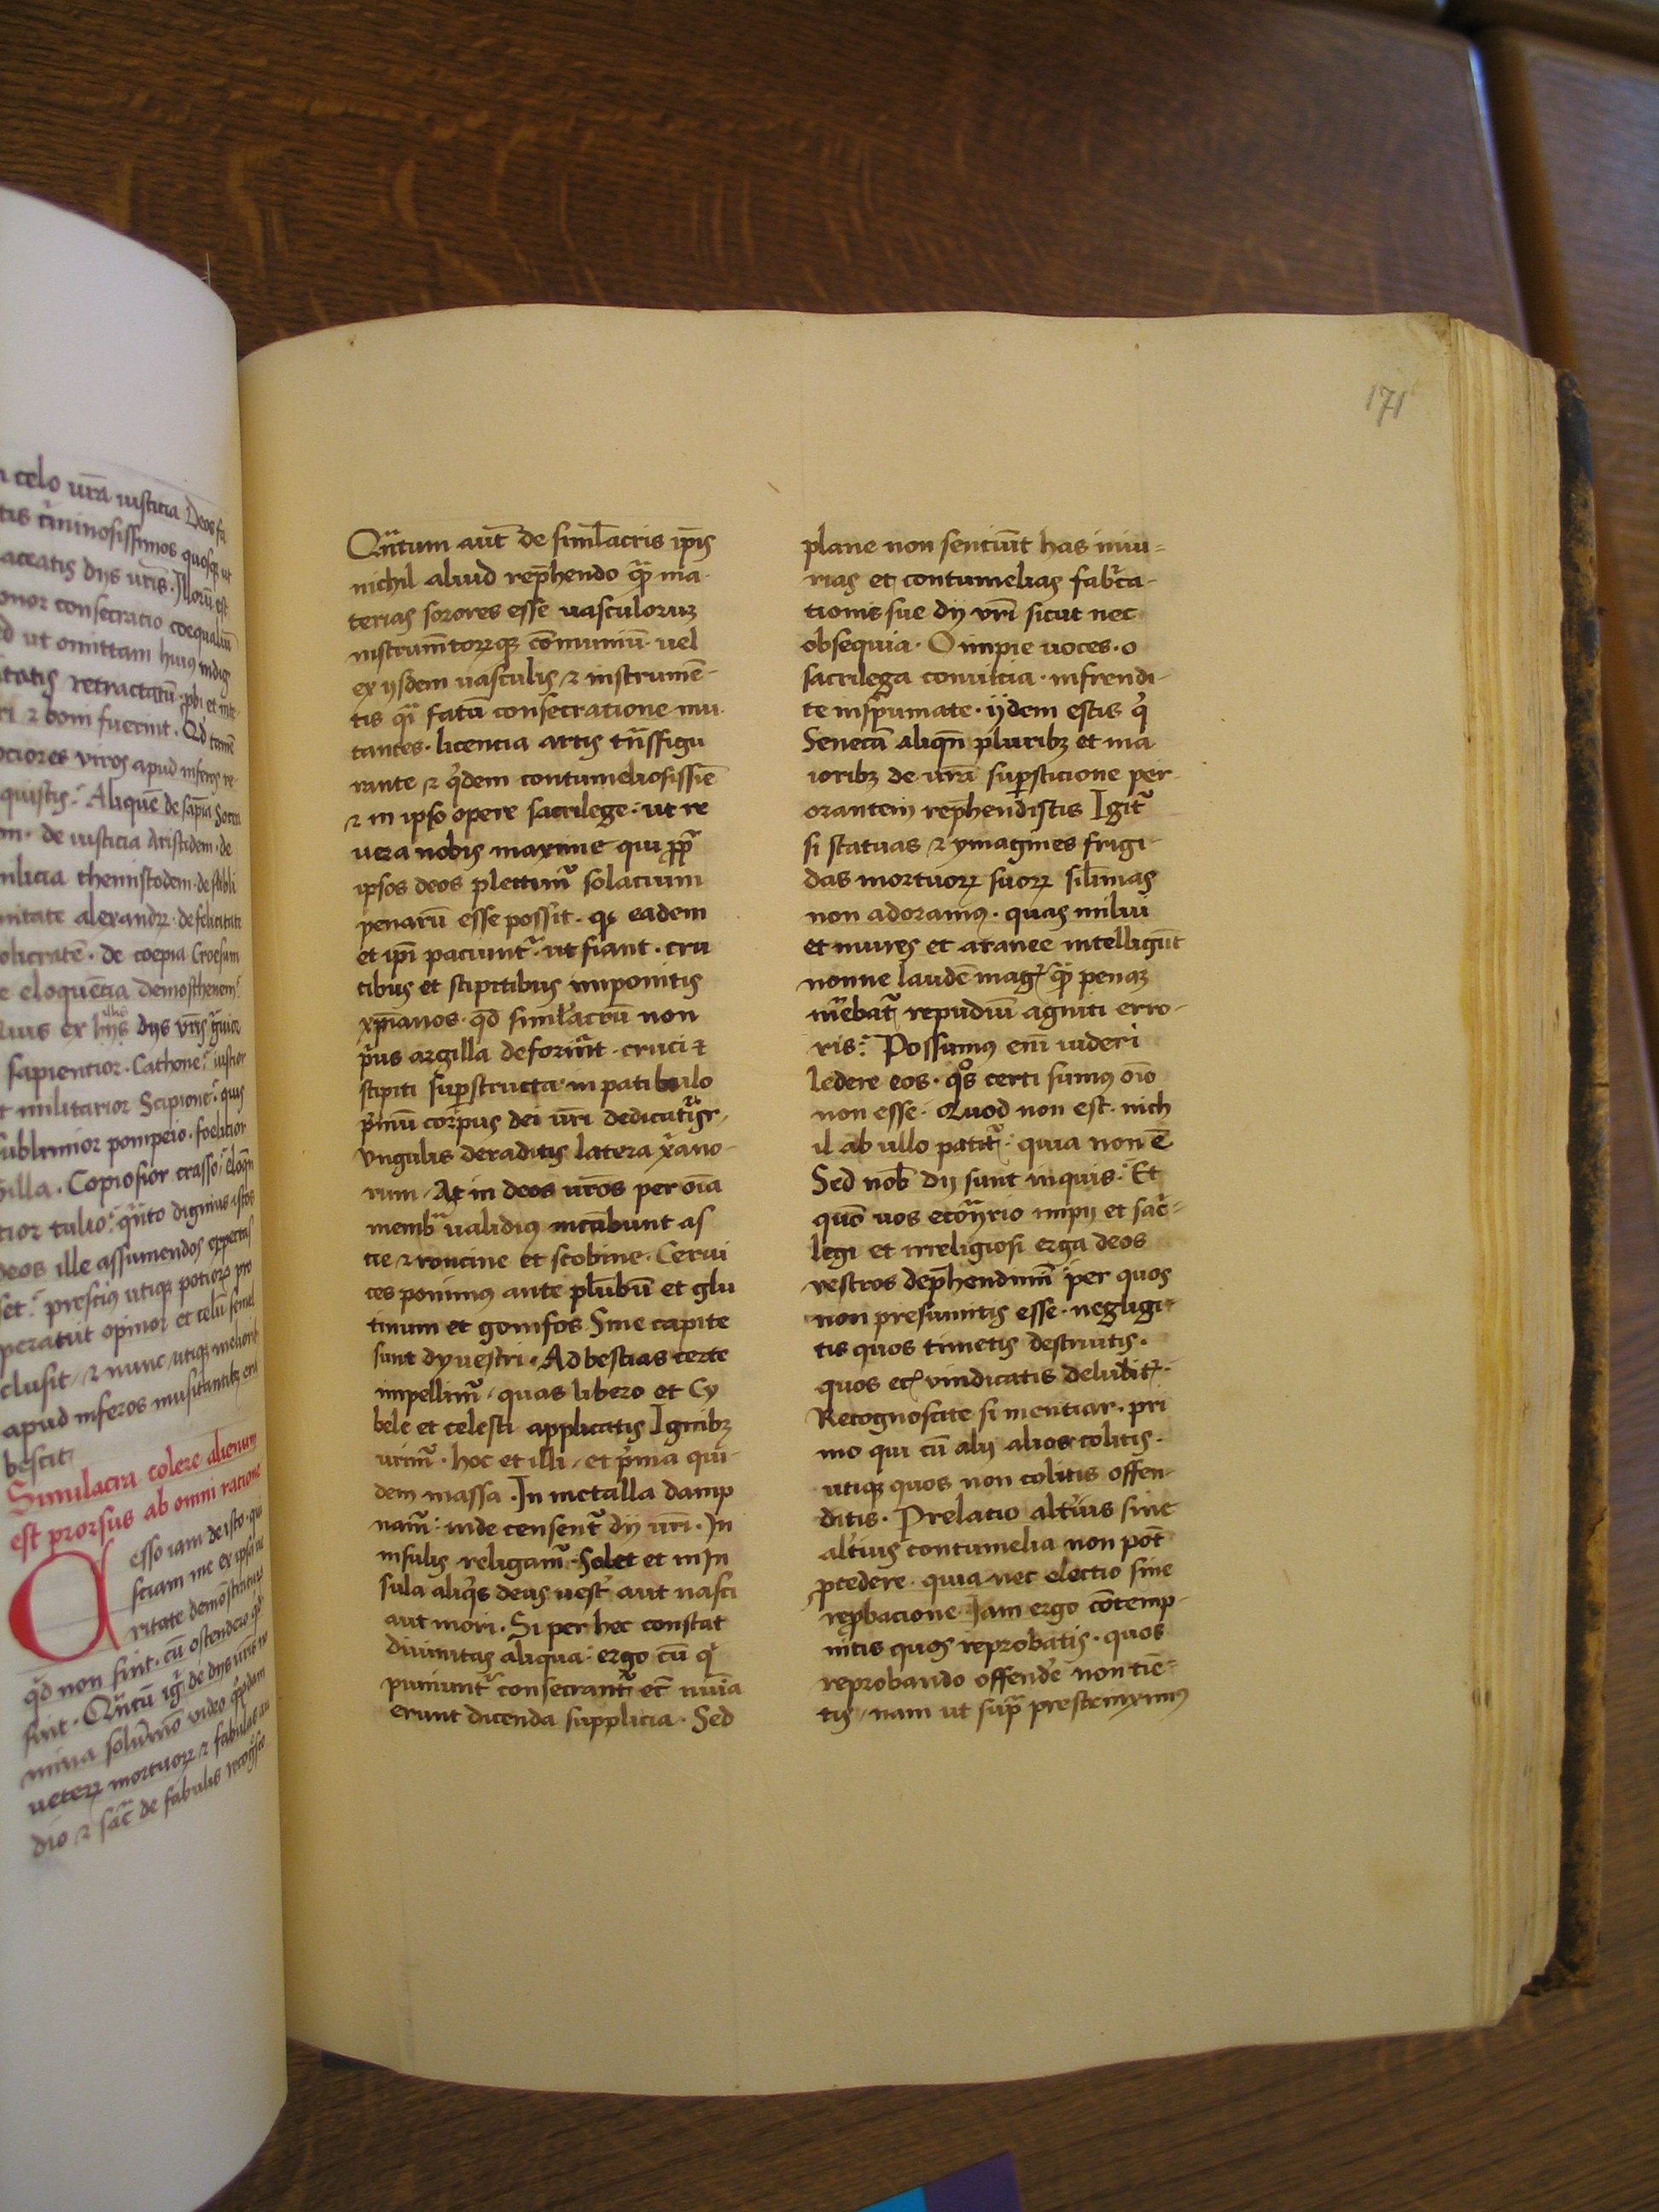 celo vr̄a iusticia Deos fa
tis c̓minosissimos quosq; ut
aceatis dijs ur̄is. Illorū est
onor consecratio coequaliū
ut omittam huius indig
itatis retractatū. pbi et inte
ri ⁊ boni fuerint. Qd̓ tamē
ociores viros apud inferos re
quistis: Aliquē de sapīa Socra
m. de iusticia Aristidem. de
militia themistodem. de subli
mitate alexandrꝝ. de felicitate
olicratē. de coepia Croesum
e eloquētia demosthenem
illis
ex hijs dijs vr̄is g̓uior
sapientior. Cathone: iustior
militarior Scipione: quis
sublimior pompeio. foelicior
silla. Copiosior crasso: eloqn̄
tior tulio: qn̄to dignius istos
deos ille assumendos expectas
set: prescius utiq; potiorꝝ pro
peravit opinor et celū semel
clusit / ⁊ nunc utiq; meliorib
apud inferos musitantibꝫ eru
bescit
Simulacra colere alienum
est prorsus ab omni ratione
C esso iam de isto. qui
sciam me ex ipsa ve
ritate demōstraturū
qd̓ non sint. cū ostendero qd̓
sint. Qn̄tū igr̄ de dijs ur̄is no
mina solūmō video qr̄ūdam
veterꝝ mortuorꝝ ⁊ fabulas au
dio ⁊ sac̄ de fabulis recog̓sco
171
Qn̄tum aut̄ de siml̄acris ip̄is
nichil aliud rep̄hendo qꝫ̄ ma-
terias sorores esse uasculorum
instrum̄torꝝqꝫ cōmuniū. uel
ex ijsdem uasculis / ⁊ instrumē-
tis qi̓ fatū consecratione mu-
tantes. licencia artis tn̄sfigu
rante ⁊ q̓dem contumeliosissiē
⁊ in ipso opere sacrilege. ut re
uera nobis maxime qui pp̄
ipsos deos plectim̄ solacium
penarū esse possit. qꝫ eadem
et ip̄i paciunt̄ ut fiant. cru
cibus et stipitibus imponitis
xp̄ianos. qd̓ siml̓acrū non
p̓us argilla deform̄t. cruci ⁊
stipiti suꝑstructa: in patibulo
p̓mū corpus dei ur̄i dedicat̄r
Vngulis deraditis latera xāno-
rum / At in deos ur̄os per oīa
membr̄ ualidius incūbunt as
cie ⁊ roncine et scobine. Cerui
ces ponimus ante plūbū et glu
tinum et gomfos. Sine capite
sunt dy vestri. Ad bestias certe
impellim̄ / quas libero et Cy
bele et celesti applicatis Ignibꝫ
urim̄. hoc et illi / et p̓ma qui-
dem massa. In metalla damp
nam̄: inde censent̄ dij ur̄i. In
insulis religam̄. Solet et in In
sula aliq̓s deus uest̓ aut nasci
aut mori. Si per hec constat
diuinitas aliqua: ergo cū q̓
puniunt̄ consecrant̄ et̄ nūīa
erunt dicenda supplicia. Sed
plane non sentiūt has iniu=
rias et contumelias fabr̓ca-
tionis sue dij vr̄i sicut nec
obsequia. O impie uoces. o
sacrilega conuicia. infrendi-
te inspumate. ijdem estis q̓
Senecā aliqn̄ pluribꝫ et ma
ioribꝫ de ur̄a suꝑsticione per-
orantem rep̄hendistis Igit̄
si statuas ⁊ ymagines frigi-
das mortuorꝝ suorꝝ sil̄imas
non adoramus. quas milui
et mures et aranee intelligūt
nonne laudē mag̓ qꝫ̄ penaꝫ
m̓ebat̄ repudiū agniti erro-
ris: Possumus eni̅ uideri
ledere eos. qͦs certi sumus oīo
non esse. Quod non est. nich
il ab ullo patit̄: quia non ē
Sed nob̄ dij sunt inquis: Et
quō uos econ̄rio impij et sac̓=
legi et irreligiosi erga deos
vestros dep̄hendimī per quos
non presumitis esse. negligi-
tis quos timetis destruitis.
quos et̄ vindicatis deludit̓.
Recognoscite si mentiar. pri
mo qui cū alij alios colitis.
utiqꝫ quos non colitis offen-
ditis. Prelatio alt̓ius sine
alt̓ius contumelia non pōt
ꝓcedere. quia nec electio sine
reꝓbacione Iam ergo cōtemp-
nitis quos reprobatis. quos
reprobando offende̓ non timē=
tis / nam ut supͣ prestrinximus